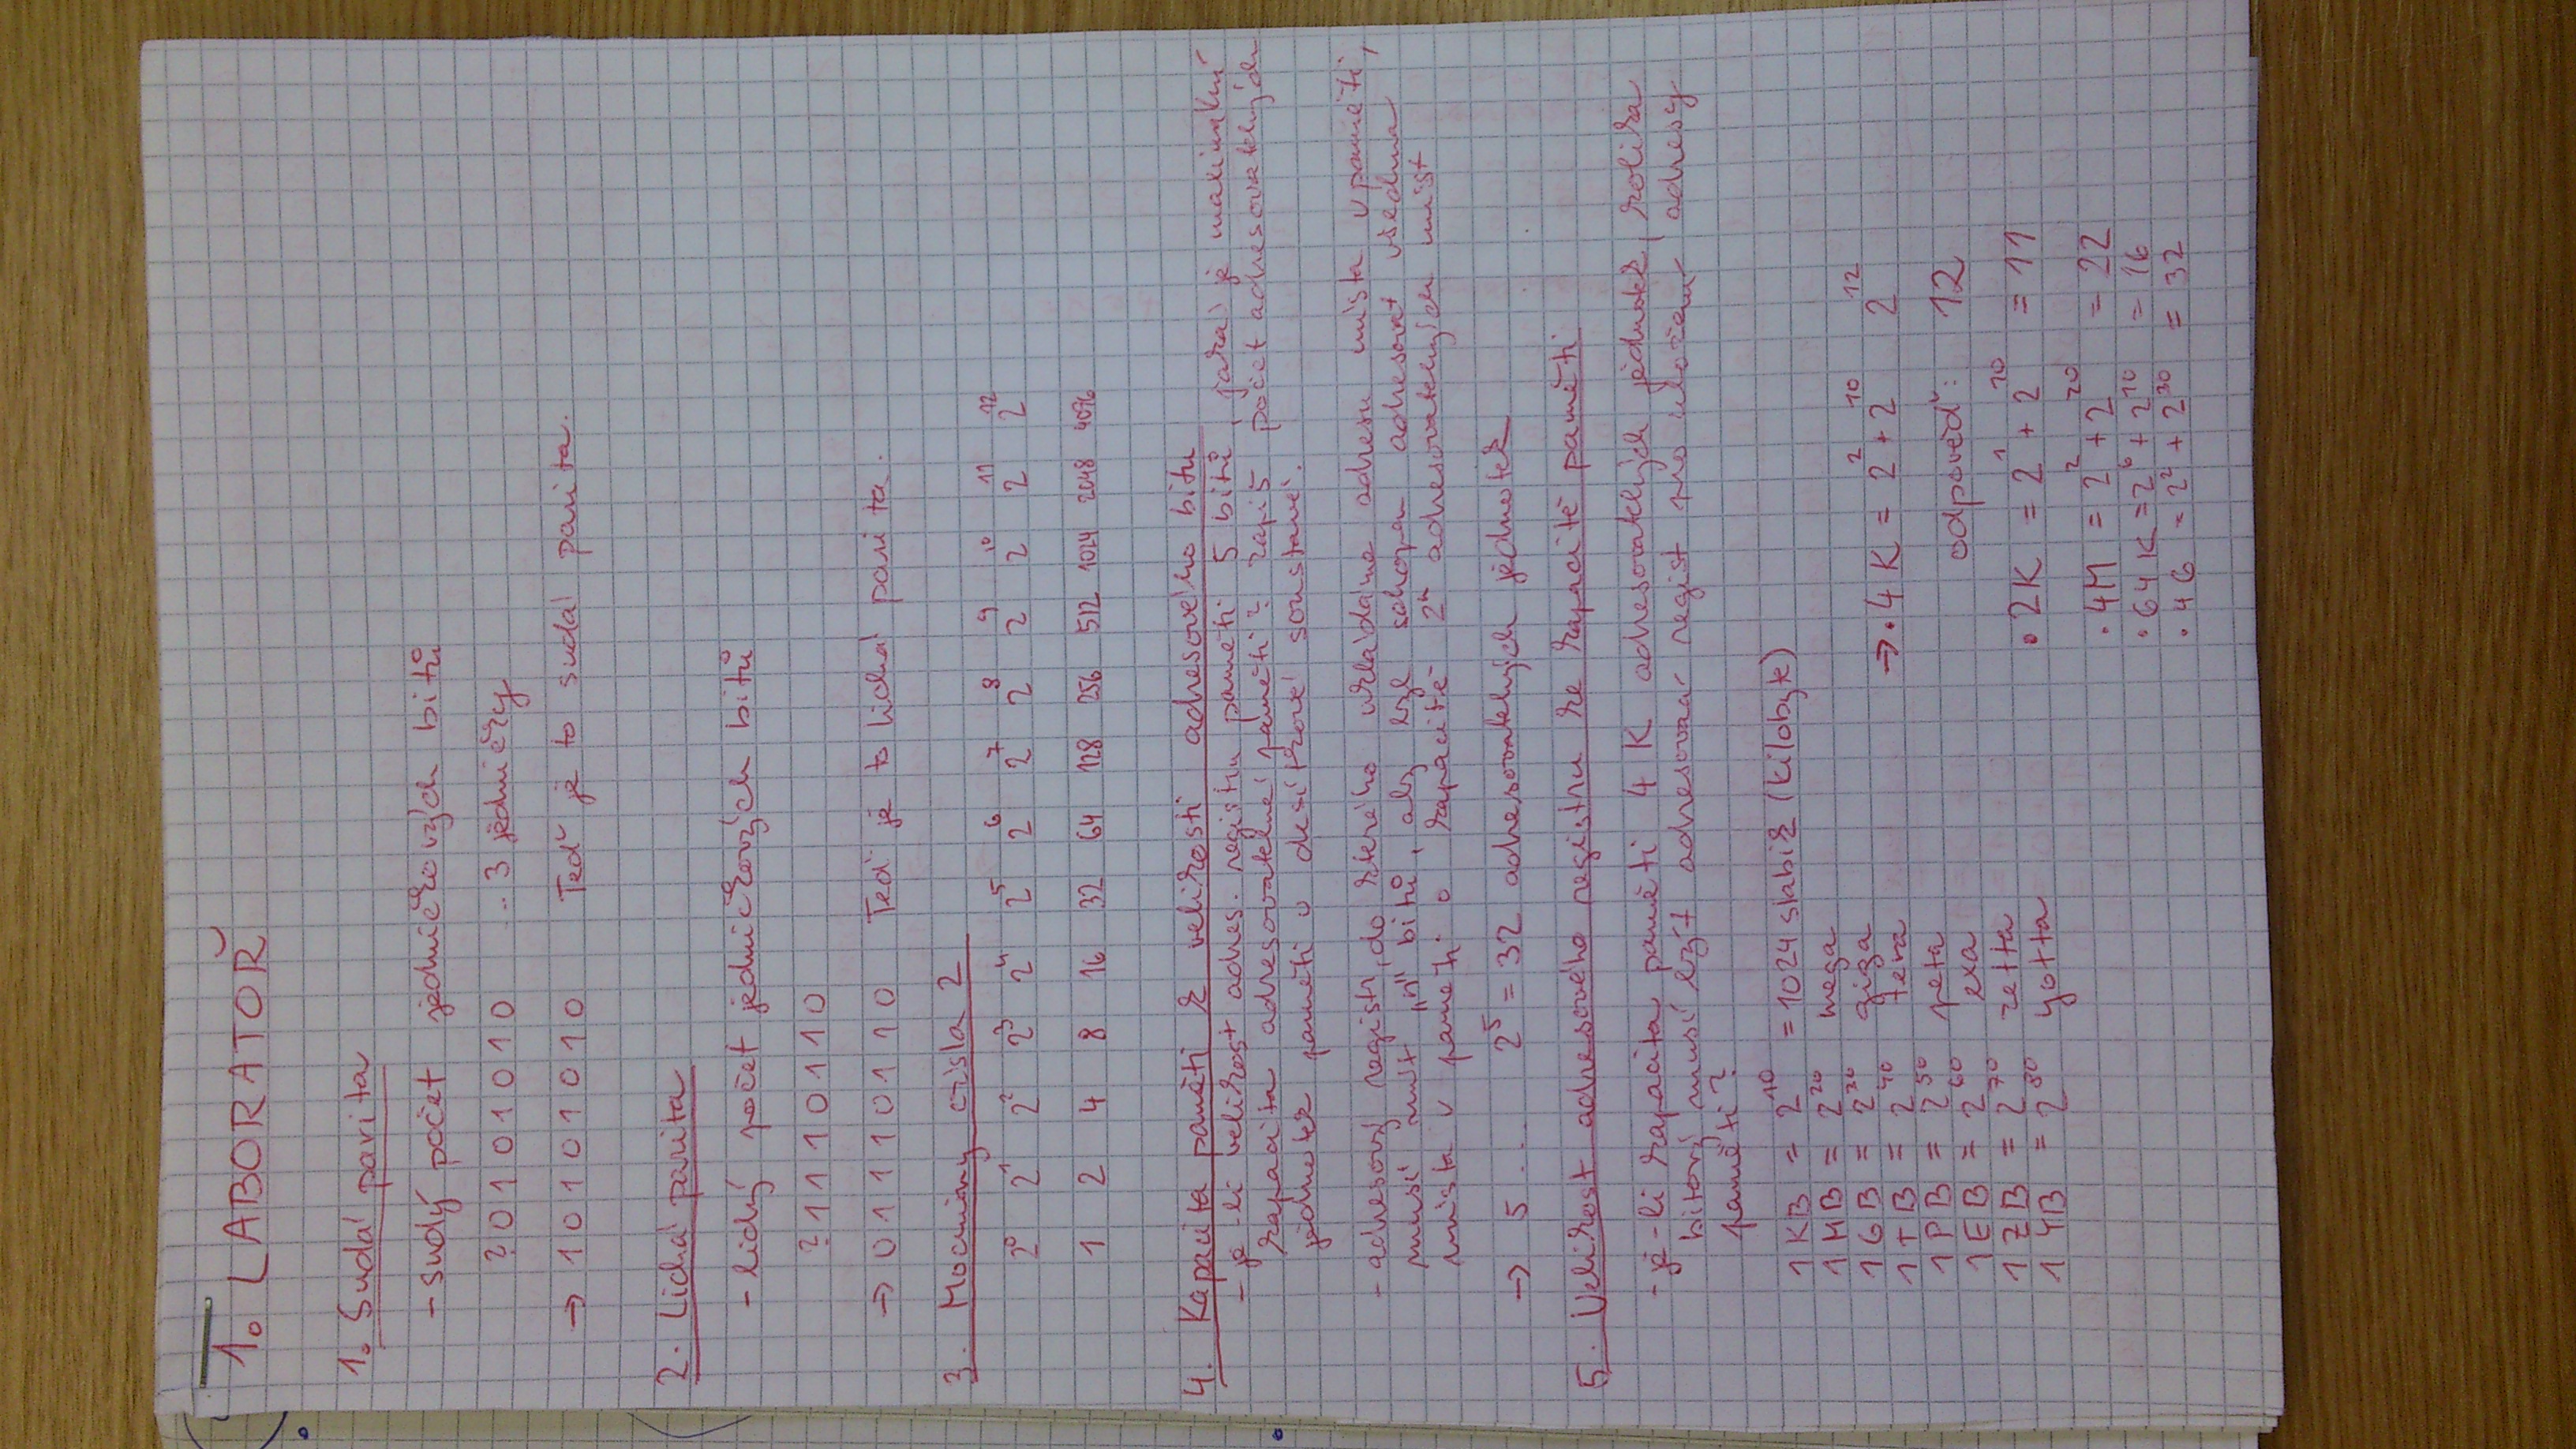 1. LABORATOŘ
1. Sudá parita
- sudý počet jedničkových bitů
? 0 1 0 1 0 1 0 ..3 jedničky
→ 1 0 1 0 1 0 1 0 Teď je to sudá parita.
2. Lichá parita
- lichý počet jedničkových bitů
? 1 1 1 0 1 1 0
→ 0 1 1 1 0 1 1 0 Teď je to lichá parita.
3. Mocniny čísla 2
2⁰ 2¹ 2² 2³ 2⁴ 2⁵ 2⁶ 2⁷ 2⁸ 2⁹ 2¹⁰ 2¹¹ 2¹²
1 2 4 8 16 32 64 128 256 512 1024 2048 4096
4. Kapacita paměti k velikosti adresového bitu
- je-li velikost adres. registru paměti 5 bitů, jaká je maximální
kapacita adresovatelné paměti? zapiš počet adresovatelných
jednotek paměti v desítkové soustavě.
- adresový registr, do kterého vkládáme adresu místa v paměti,
musí mít "n" bitů, aby byl schopen adresovat všechna
místa v paměti o kapacitě 2ⁿ adresovatelných míst
→ 5 ... 2⁵ = 32 adresovatelných jednotek
5. Velikost adresového registru ke kapacitě paměti
- je-li kapacita paměti 4 K adresovatelných jednotek, kolika
bitový musí být adresovací registr pro uložení adresy
paměti?
1 KB = 2¹⁰ = 1024 slabik (kilobyte)
1 MB = 2²⁰ mega
1 GB = 2³⁰ giga
1 TB = 2⁴⁰ tera
1 PB = 2⁵⁰ peta
1 EB = 2⁶⁰ exa
1 ZB = 2⁷⁰ zetta
1 YB = 2⁸⁰ yotta
→ • 4K = 2² + 2¹⁰ 2¹²
odpověď: 12
• 2K = 2¹ + 2¹⁰ = 11
• 4M = 2² + 2²⁰ = 22
• 64K = 2⁶ + 2¹⁰ = 16
• 4G = 2² + 2³⁰ = 32